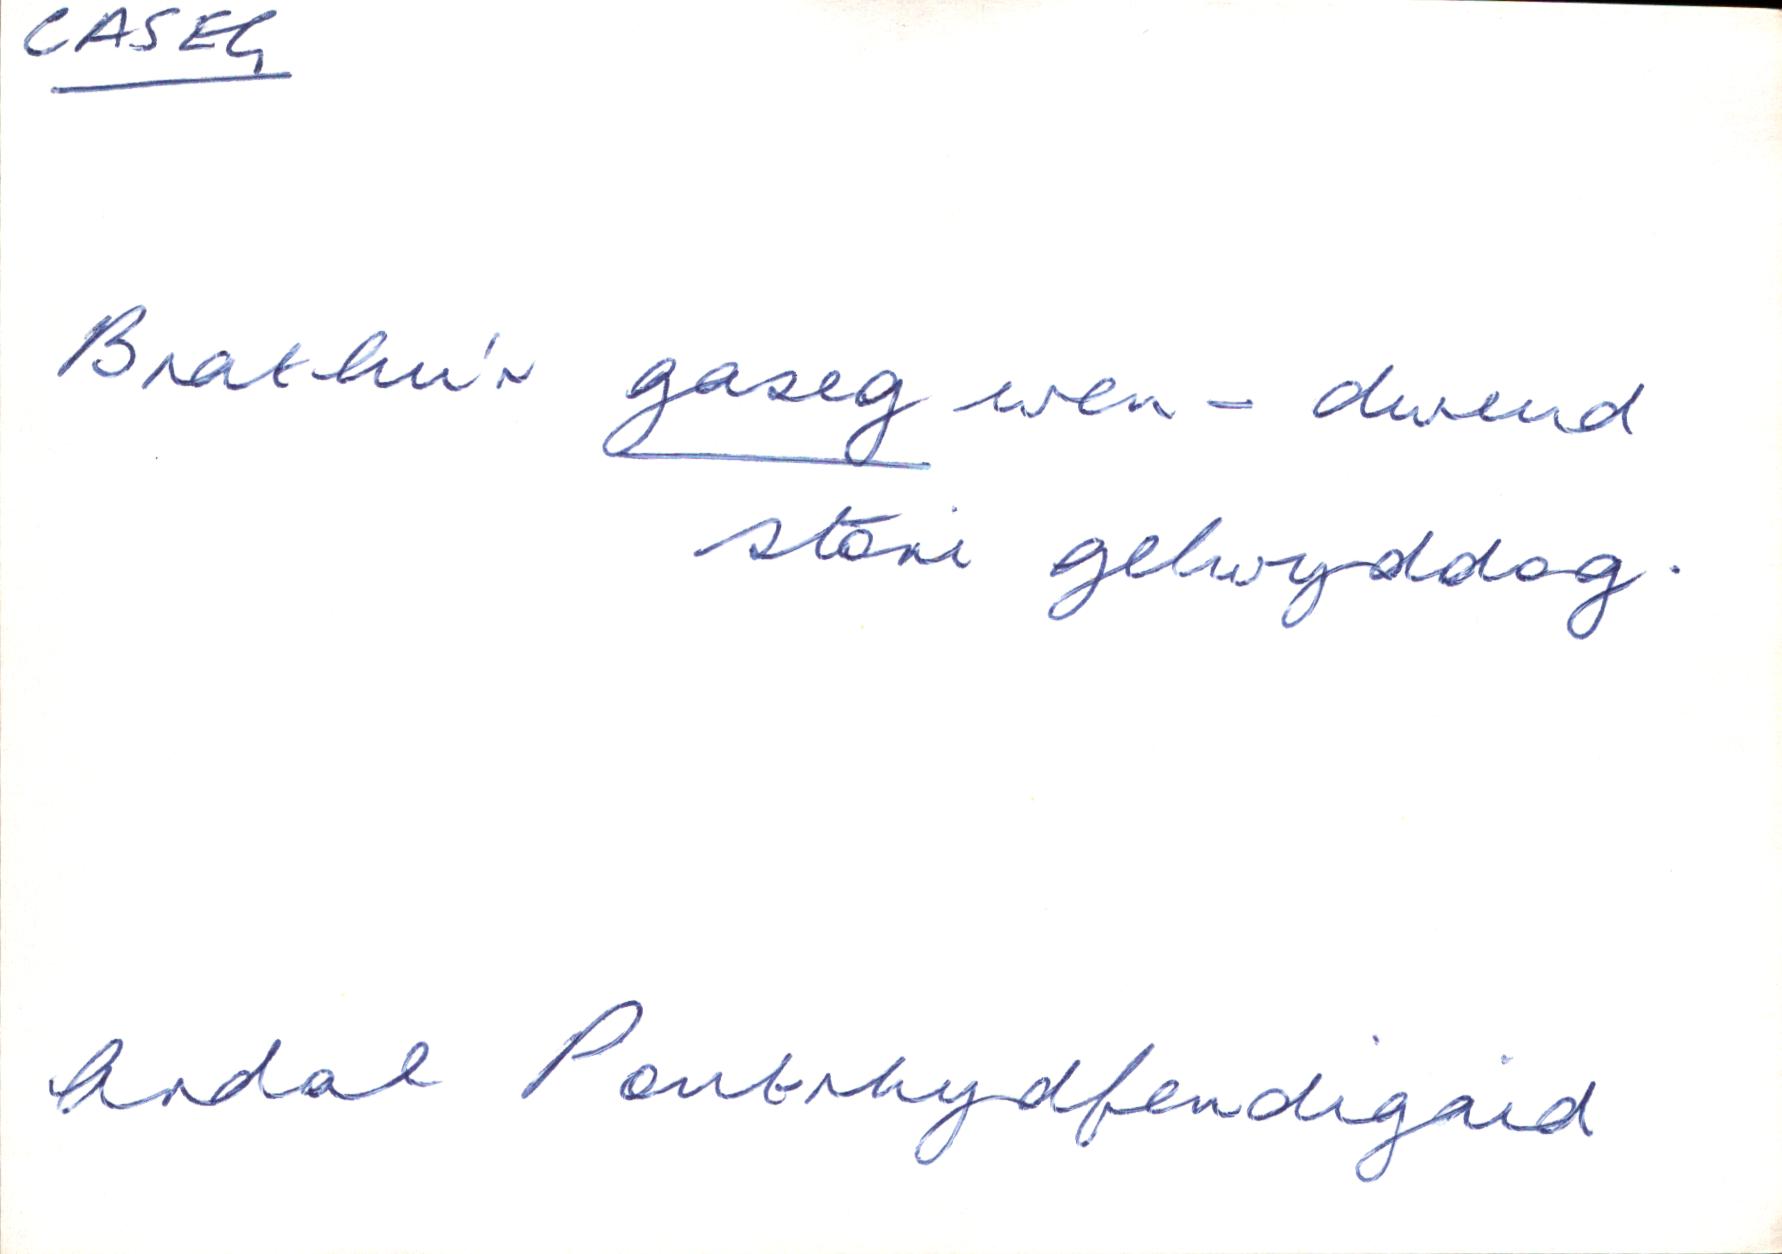 CASEG
Brathu'r gaseg wen - dweud
stori gelwyddog.
Ardal Pontrhydfendigaid